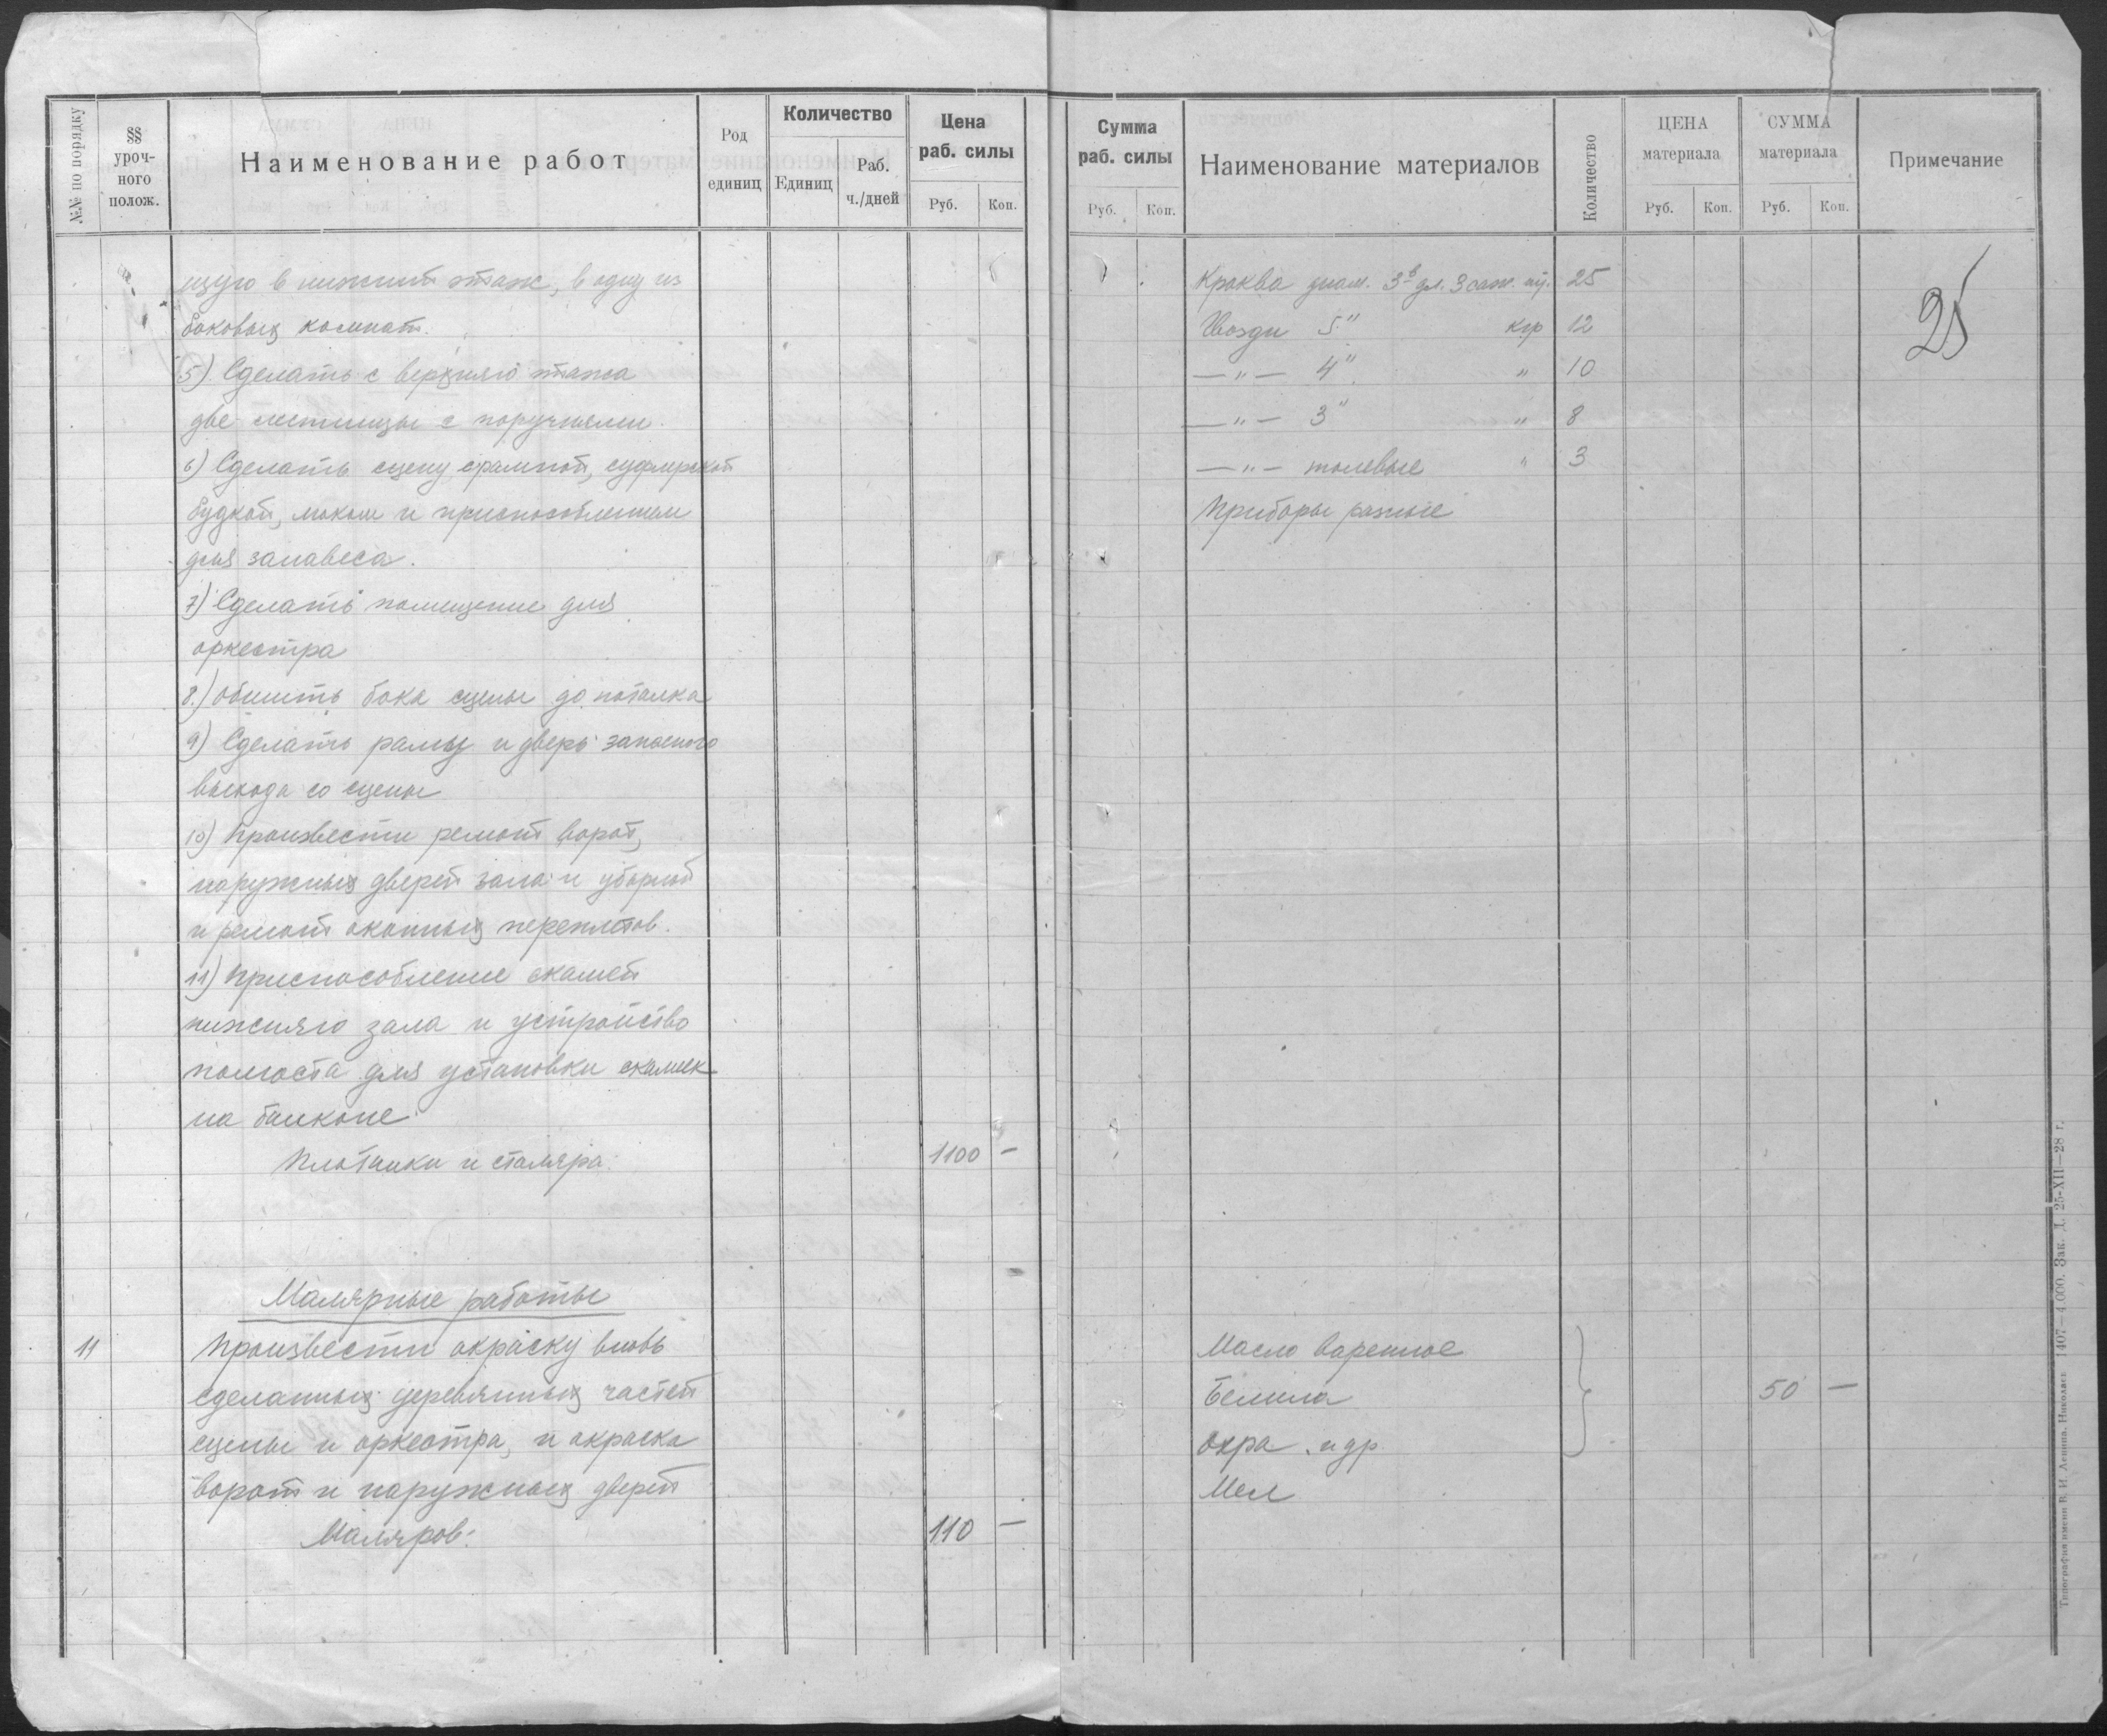 №№ по порядку
§§ уроч-ного полож.
Наименование работ
Род единиц
Количество
Единиц
Раб. ч./дней
Цена раб. силы
Руб.
Коп.
щую в нижний этаж, в одну из
боковых комнат.
5) Сделать с верхняго этажа
две лестницы с поручнями.
6) Сделать сцену с рампой, суфлерской
будкой, люком и приспособлением
для занавеса.
7) Сделать помещение для
оркестра
8.) Обшить бока сцены до потолка
9) Сделать рамы и дверь запасного
выхода со сцены
10) Произвести ремонт ворот,
наружных дверей зала и уборной
и ремонт оконных переплетов.
11) Приспособление скамей
нижняго зала и устройство
помоста для установки скамеек
на балконе
Плотники и столяра. 1100 —
Малярные работы
11 Произвести окраску вновь
сделанных деревянных частей
сцены и оркестра, и окраска
ворот и наружных дверей
Маляров: 110 —
Сумма раб. силы
Руб.
Коп.
Наименование материалов
Количество
ЦЕНА материала
Руб.
Коп.
СУММА материала
Руб.
Коп.
Примечание
25
Кроква диам. 3в дл. 3 саж. шт. 25
Гвозди 5" кгр 12
—"— 4" " 10
—"— 3" " 8
—"— толевые " 3
Приборы разные
Масло вареное
Белила 50 —
Охра и др.
Мел
Типография имени В. И. Ленина. Николаев 1407—4.000. Зак. Д. 25-XII—28 г.